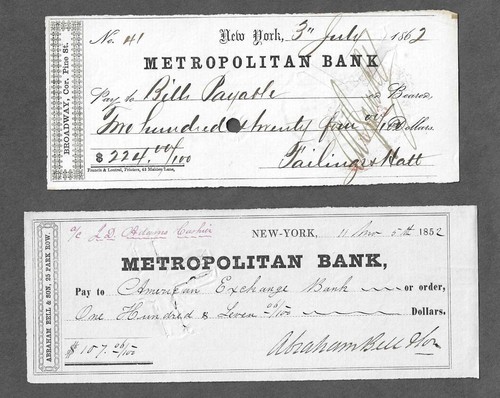 No. 41 New York, 3rd July 1862
METROPOLITAN BANK
BROADWAY, Cor. Pine St.
Pay to Bills Payable or Bearer,
Two hundred & twenty four 00/100 Dollars
$ 224.00/100
Francis & Loutrel, Printers, 45 Maiden Lane,
a/c J. D. Adams Cashier
NEW-YORK, 11 Mo 5th 1852
METROPOLITAN BANK,
ABRAHAM BELL & SON, 25 PARK ROW.
Pay to American Exchange Bank or order,
One Hundred & Seven 06/100 Dollars.
$ 107.06/100
Abraham Bell & Son